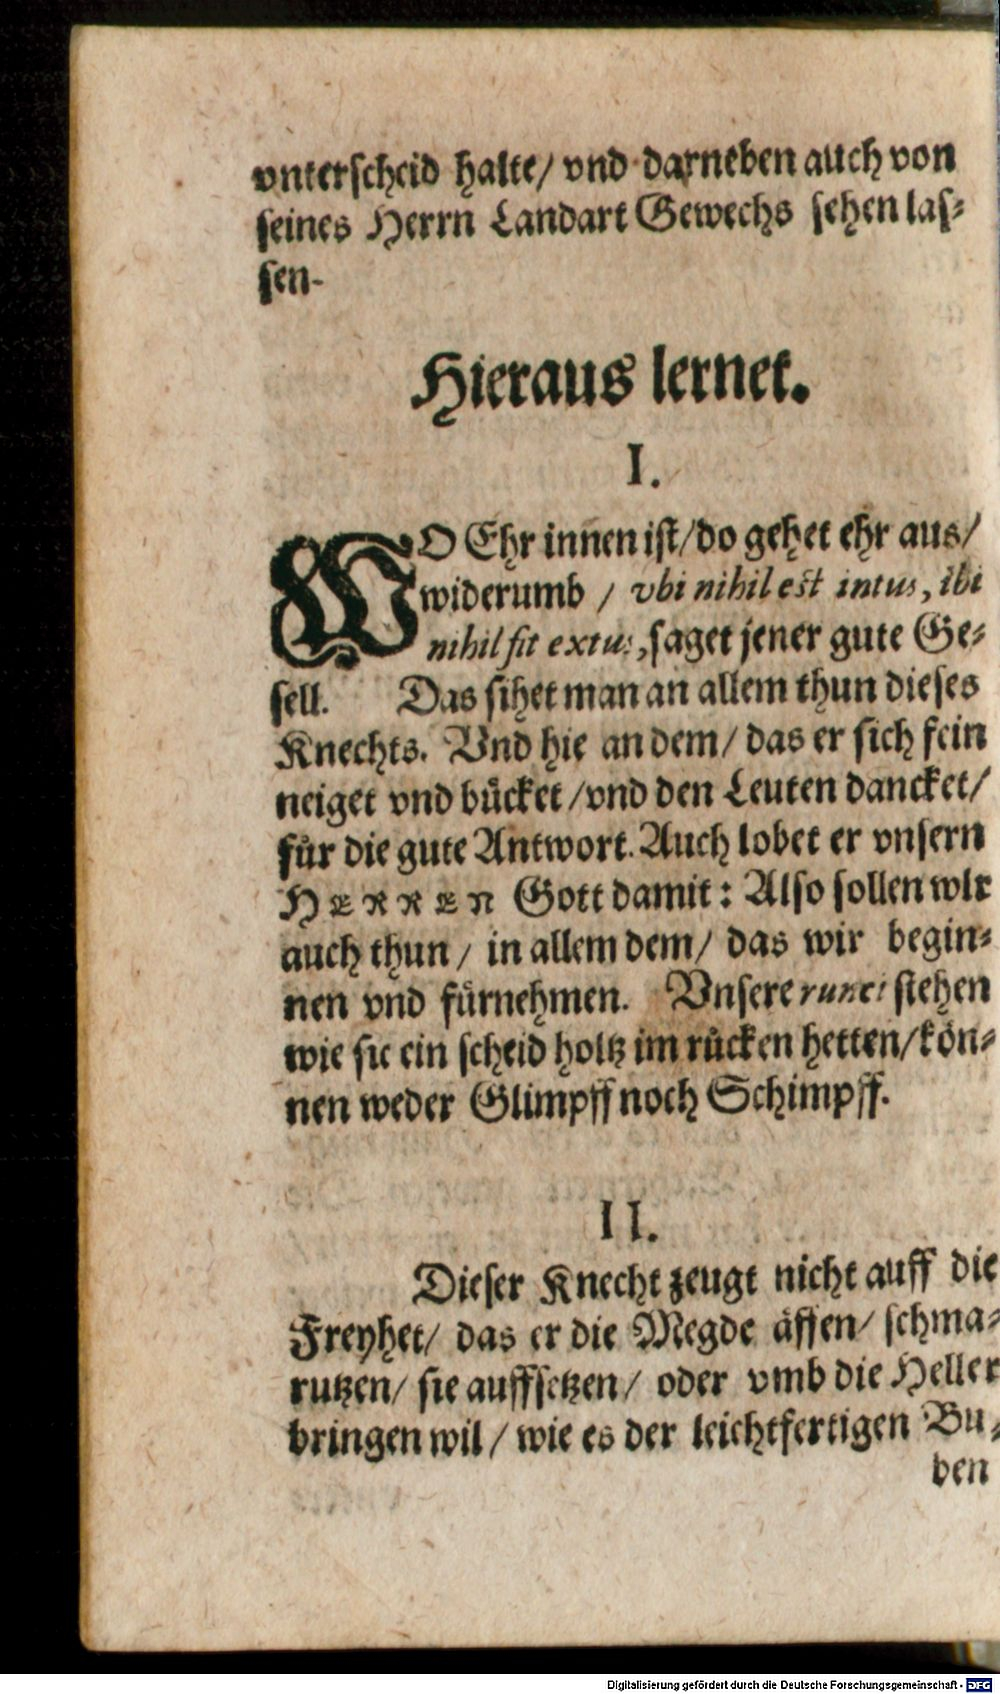 vnterscheid halte/ vnd darneben auch von
seines Herrn Landart Gewechs sehen las-
sen-
Hieraus lernet.
I.
WO Ehr innen ist/do gehet ehr aus/
widerumb / vbi nihil est intus, ibi
nihil fit extus, saget jener gute Ge-
sell. Das sihet man an allem thun dieses
Knechts. Vnd hie an dem/ das er sich fein
neiget vnd bücket /vnd den Leuten dancket/
für die gute Antwort. Auch lobet er vnsern
HERREN Gott damit: Also sollen wir
auch thun/ in allem dem/ das wir begin-
nen vnd fürnehmen. Vnsere stehen
wie sie ein scheid holtz im rücken hetten/kön-
nen weder Glimpff noch Schimpff.
II.
Dieser Knecht zeugt nicht auff die
Freyhet/ das er die Megde äffen/ schma-
rutzen/ sie auffsetzen/ oder vmb die Heller
bringen wil/ wie es der leichtfertigen Bu-
ben
Digitalisierung gefördert durch die Deutsche Forschungsgemeinschaft - DFG